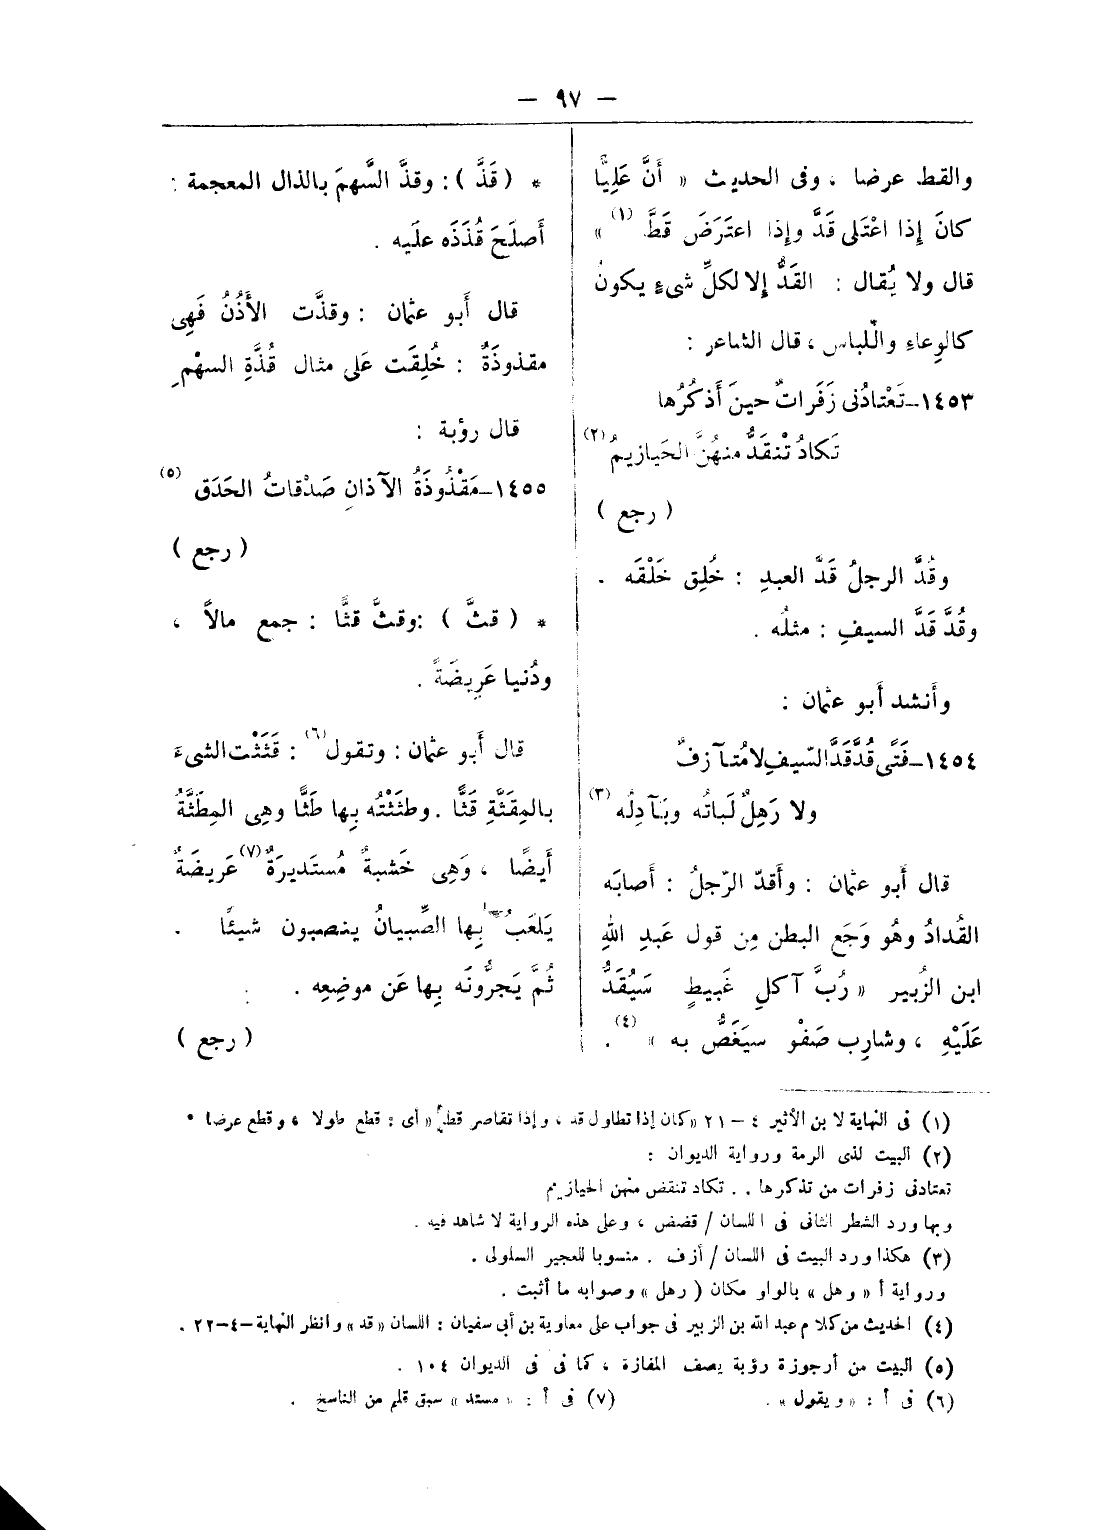 — ٩٧ —
والقط عرضا ، وفى الحديث « أَنَّ عَلِيًّا
كانَ إِذا اعْتَلى قَدَّ وإِذا اعتَرَضَ قَطَّ (١) »
قال ولا يُقال : القَدُّ إِلا لكلِّ شىءٍ يكونُ
كالوِعاءِ واللّباس ، قال الشاعر :
١٤٥٣ــ تَعْتادُنى زَفَراتٌ حينَ أَذكُرُها
تَكادُ تْنقَدُّ منهُنَّ الحَيازيمُ (٢)
( رجع )
وقُدَّ الرجلُ قَدَّ العبدِ : خُلِق خَلْقَه .
وقُدَّ قَدَّ السيفِ : مثلُه .
وأَنشد أَبو عثمان :
١٤٥٤ــ فَتًى قُدَّ قَدَّ السّيفِ لا مُتآزفٌ
ولا رَهِلٌ لَباتُه وبَآدِلُه (٣)
قال أَبو عثمان : وأَقدّ الرّجلُ : أَصابَه
القُدادُ وهُو وَجَع البطن مِن قول عَبدِ اللهِ
ابن الزُبير « رُبَّ آكلِ عَبيطٍ سَيُقَدُّ
عَلَيْهِ ، وشارِب صَفْو سيَغَصُّ به » (٤) .
* ( قَذَّ ) : وقذَّ السَّهمَ بالذال المعجمة :
أَصلَحَ قُذَذَه علَيه .
قال أَبو عثمان : وقذَّت الأُذُنُ فَهِى
مقذوذَةٌ : خُلِقَت عَلى مثال قُذَّةِ السهْمِ
قال رؤبة :
١٤٥٥ــ مَقْذُوذَةُ الآذانِ صَدْقاتُ الحَدَق (٥)
( رجع )
* ( قثَّ ) : وقثَّ قثًّا : جمع مالاً ،
ودُنيا عَرِيضَةً .
قال أَبو عثمان : وتقول (٦) : قَثَثْت الشىءَ
بالمِقثَّةِ قَثًّا . وطثَثْتُه بِها طَثًّا وهِى المِطثَّةُ
أَيضًا ، وَهِى خَشبةٌ مُستَديرَةٌ (٧) عَريضَةٌ
يَلعَبُ بِها الصِّبيانُ ينصبون شيئًا .
ثُمَّ يَجرُّونَه بِها عَن موضِعِه .
( رجع )
(١) فى النهاية لابن الأثير ٤ – ٢١ « كان إذا تطاول قد ، وإذا تقاصر قط » أى : قطع طولا ، وقطع عرضا .
(٢) البيت لذى الرمة ورواية الديوان :
تعتادنى زفرات من تذكرها . . تكاد تنقض منهن الحيازيم
وبها ورد الشطر الثانى فى اللسان / قضض ، وعلى هذه الرواية لا شاهد فيه .
(٣) هكذا ورد البيت فى اللسان / أزف . منسوبا للعجير السلولى .
ورواية أ « وهل » بالواو مكان ( رهل » وصوابه ما أثبت .
(٤) الحديث من كلام عبد الله بن الزبير فى جواب على معاوية بن أبى سفيان : اللسان « قد » وانظر النهاية – ٤ – ٢٢ .
(٥) البيت من أرجوزة رؤبة يصف المفازة ، كما فى فى الديوان ١٠٤ .
(٦) فى أ : « ويقول » . (٧) فى أ : « مستد » سبق قلم من الناسخ .